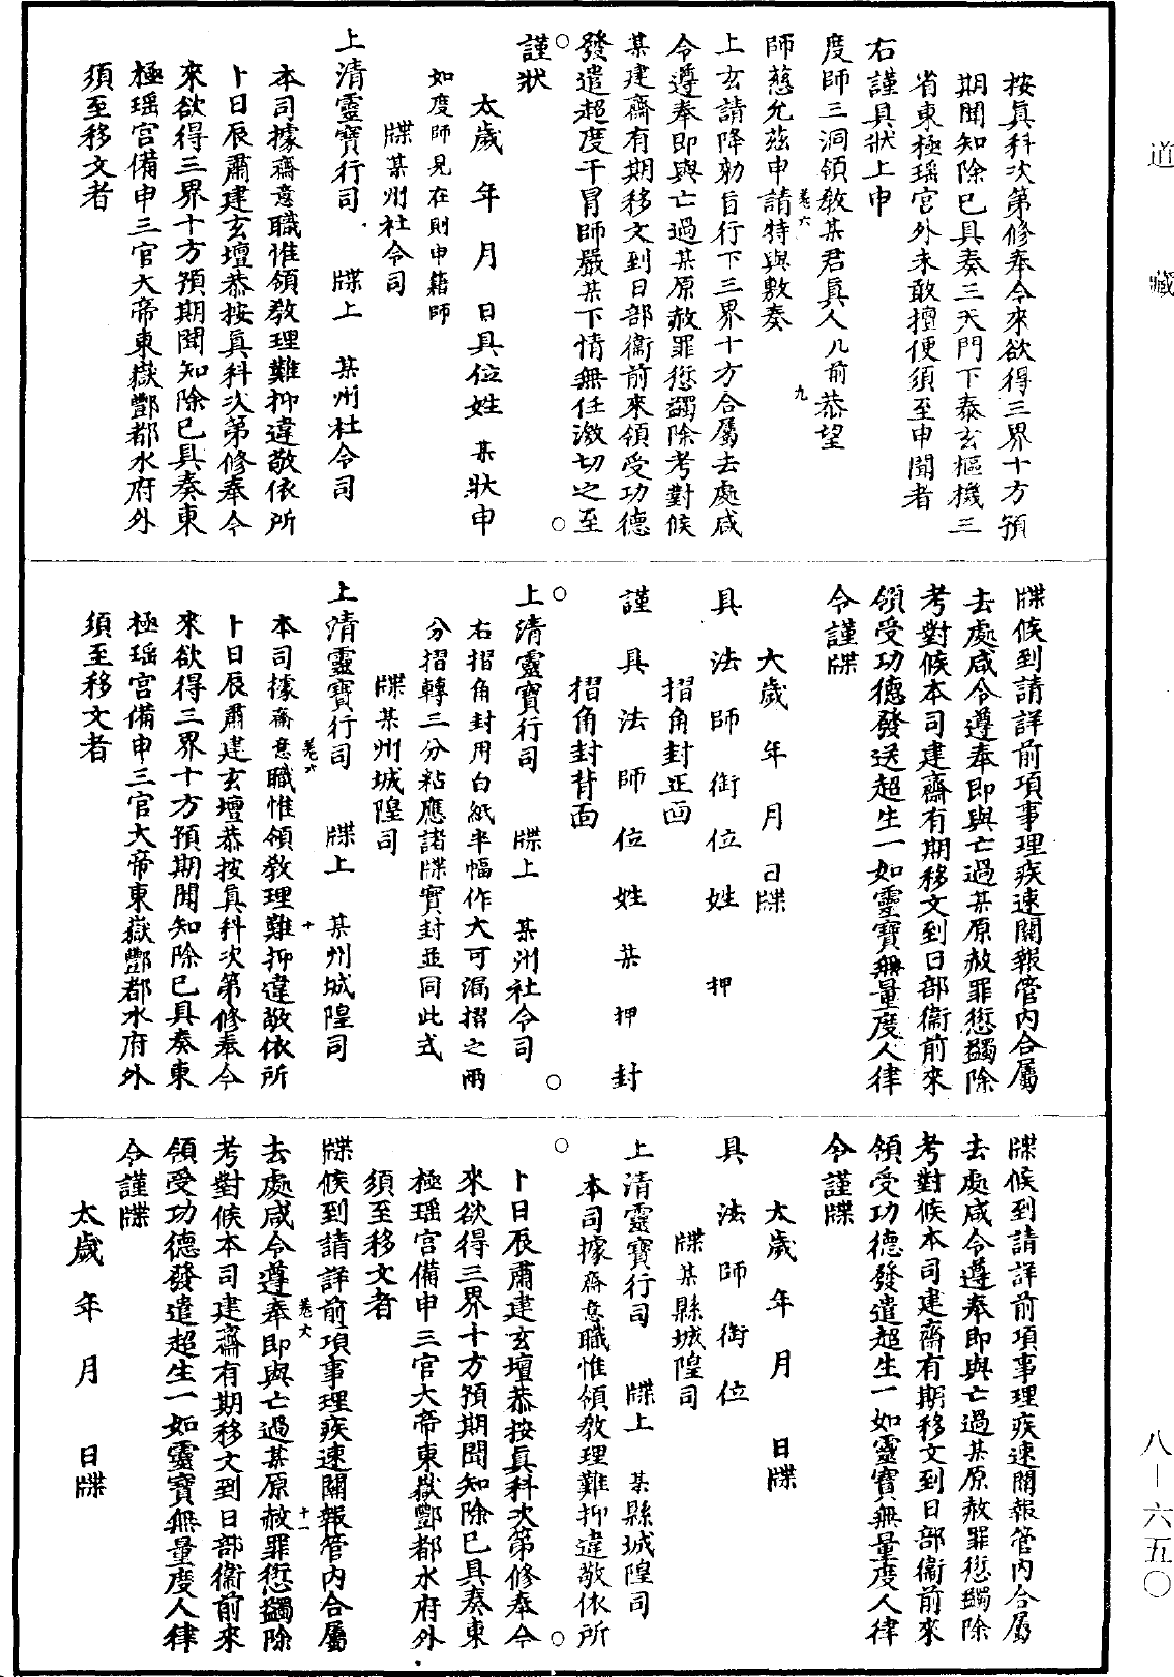 道藏
按眞科次第修奉今來欲得三界十方預
期聞知除已具奏三天門下泰玄樞機三
省東極瑤宮外未敢擅便須至申聞者
右謹具狀上申
度師三洞領敎某君眞人几前恭望
師慈允玆申請特與敷奏
卷六
九
上玄請降勑旨行下三界十方合屬去處咸
令遵奉即與亡過某原赦罪愆蠲除考對候
某建齋有期移文到日部衞前來領受功德
發遣超度干冒師嚴某下情無任激切之至
謹狀
太歲年月日具位姓某狀申
如度師見在則申籍師
牒某州社令司
上清靈寶行司牒上某州社令司
本司據齋意職惟領敎理難抑違敬依所
卜日辰肅建玄壇恭按眞科次第修奉今
來欲得三界十方預期聞知除已具奏東
極瑤宮備申三官大帝東嶽酆都水府外
須至移文者
牒候到請詳前項事理疾速關報管內合屬
去處咸令遵奉即與亡過某原赦罪愆蠲除
考對候本司建齋有期移文到日部衞前來
領受功德發送超生一如靈寶無量度人律
令謹牒
大歲年月日牒
具法師銜位姓押
摺角封正面
謹具法師位姓某押封
摺角封背面
上清靈寶行司牒上某州社令司
右摺角封用白紙半幅作大可漏摺之兩
分摺轉三分粘應諸牒實封並同此式
牒某州城隍司
上清靈寶行司牒上某州城隍司
本司據齋意職惟領敎理難抑違敬依所
卷六
十
卜日辰肅建玄壇恭按眞科次第修奉今
來欲得三界十方預期聞知除已具奏東
極瑤宮備申三官大帝東嶽酆都水府外
須至移文者
牒候到請詳前項事理疾速關報管內合屬
去處咸令遵奉即與亡過某原赦罪愆蠲除
考對候本司建齋有期移文到日部衞前來
領受功德發遣超生一如靈寶無量度人律
令謹牒
太歲年月日牒
具法師銜位
牒某縣城隍司
上清靈寶行司牒上某縣城隍司
本司據齋意職惟領敎理難抑違敬依所
卜日辰肅建玄壇恭按眞科次第修奉今
來欲得三界十方預期聞知除已具奏東
極瑤宮備申三官大帝東嶽酆都水府外
須至移文者
牒候到請詳前項事理疾速關報管內合屬
卷六
十一
去處咸令遵奉即與亡過某原赦罪愆蠲除
考對候本司建齋有期移文到日部衞前來
領受功德發遣超生一如靈寶無量度人律
令謹牒
太歲年月日牒
八—六五〇